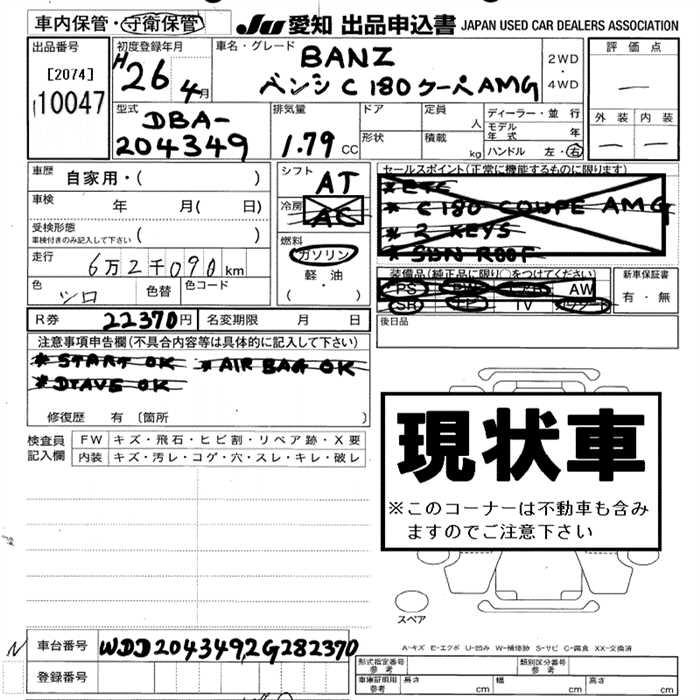 車内保管・守衛保管
JU 愛知 出品申込書 JAPAN USED CAR DEALERS ASSOCIATION
出品番号
[2074]
10047
初度登録年月
H26 4月
車名・グレード
BANZ
ベンシ C 180 クーペ AMG
2WD
・
4WD
評価点
—
外装 内装
— —
型式
DBA-
204349
排気量
1.79 CC
ドア
形状
定員
人
積載
kg
ディーラー・並行
モデル年式 年
ハンドル 左・右
車歴
自家用・( )
車検
年 月( 日)
受検形態
車検付きのみ記入して下さい ( )
走行
6万2千090km
色
シロ
色替
色コード
シフト
AT
冷房
AC
燃料
ガソリン
軽・油
( ・ )
セールスポイント(正常に機能するものに限ります)
* ETC
* C180 COUPE AMG
* 2 KEYS
* SUN ROOF
装備品(純正品に限り○をつけてください)
PS PW AW
SR TV
新車保証書
有・無
後日品
R券 22370円 名変期限 月 日
注意事項申告欄(不具合内容等は具体的に記入して下さい)
* START OK * AIR BAG OK
* DIAVE OK
修復歴 有 〔箇所 〕
検査員記入欄
FW キズ・飛石・ヒビ割・リペア跡・X要
内装 キズ・汚レ・コゲ・穴・スレ・キレ・破レ
現状車
※このコーナーは不動車も含み
ますのでご注意下さい
スペア
A-キズ E-エクボ U-凹み W-補修跡 S-サビ C-腐食 XX-交換済
N
車台番号 WDD2043492G282370
登録番号
形式指定番号
参考
類別区分番号
参考
車庫証明用
参考
長さ cm 幅 cm 高さ cm